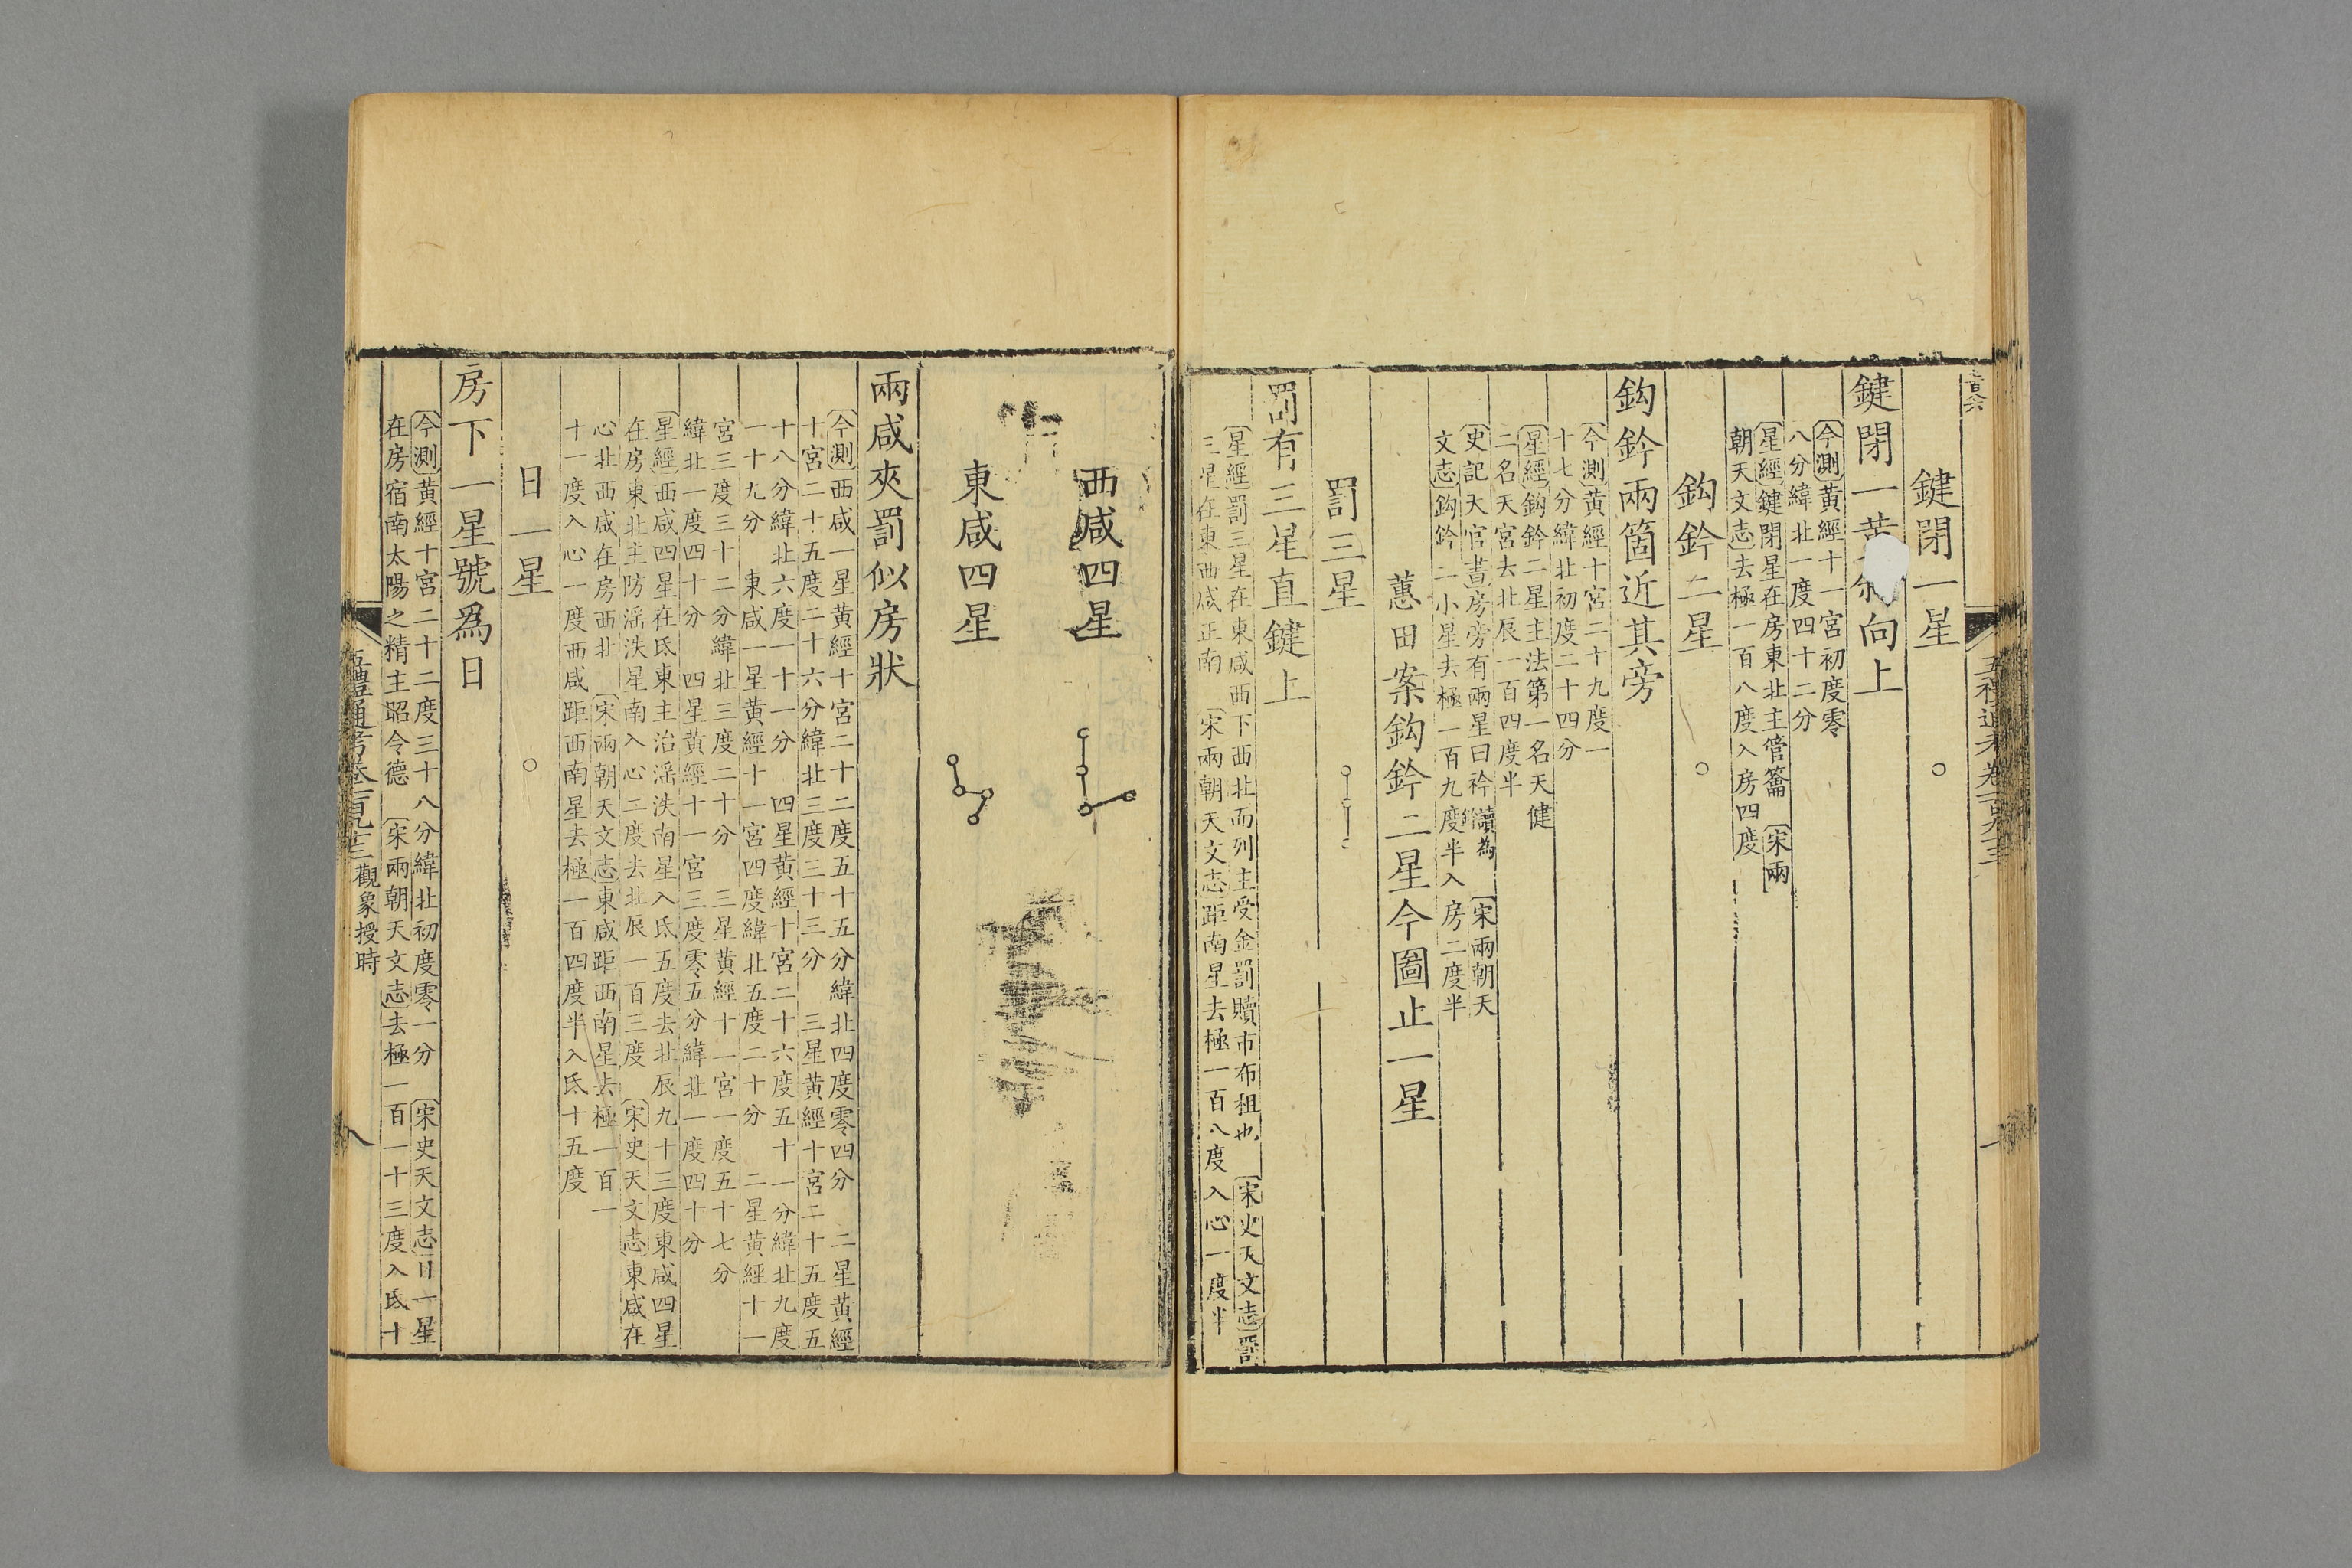 五禮通考卷一百九十三
鍵閉一星
鍵閉一黃向上
〔今測〕黃經十一宮初度零
八分緯北一度四十二分
〔星經〕鍵閉星在房東北主管籥〔宋兩
朝天文志〕去極一百八度入房四度
鈎鈐二星
鈎鈐兩箇近其旁
〔今測〕黃經十宮二十九度一
十七分緯北初度二十四分
〔星經〕鈎鈐二星主法第一名天健
二名天宮去北辰一百四度半
〔史記天官書〕房旁有兩星曰衿〔宋兩朝天
文志〕鈎鈐二小星去極一百九度半入房二度半
蕙田案鈎鈐二星今圖止一星
罰三星
罰有三星直鍵上
〔星經〕罰三星在東咸西下西北而列主受金罰贖市布租也〔宋史天文志〕罰
三星在東西咸正南〔宋兩朝天文志〕距南星去極一百八度入心一度半
西咸四星
東咸四星
兩咸夾罰似房狀
〔今測〕西咸一星黃經十宮二十二度五十五分緯北四度零四分 二星黃經
十宮二十五度二十六分緯北三度三十三分 三星黃經十宮二十五度五
十八分緯北六度一十一分 四星黃經十宮二十六度五十一分緯北九度
一十九分 東咸一星黃經十一宮四度緯北五度二十分 二星黃經十一
宮三度三十二分緯北三度二十分 三星黃經十一宮一度五十七分
緯北一度四十分 四星黃經十一宮三度零五分緯北一度四十分
〔星經〕西咸四星在氐東主治滛泆南星入氐五度去北辰九十三度東咸四星
在房東北主防滛泆星南入心二度去北辰一百三度〔宋史天文志〕東咸在
心北西咸在房西北〔宋兩朝天文志〕東咸距西南星去極一百一
十一度入心一度西咸距西南星去極一百四度半入氐十五度
日一星
房下一星號爲日
〔今測〕黃經十宮二十二度三十八分緯北初度零一分〔宋史天文志〕日一星
在房宿南太陽之精主昭令德〔宋兩朝天文志〕去極一百一十三度入氐十
五禮通考卷一百九十三 觀象授時